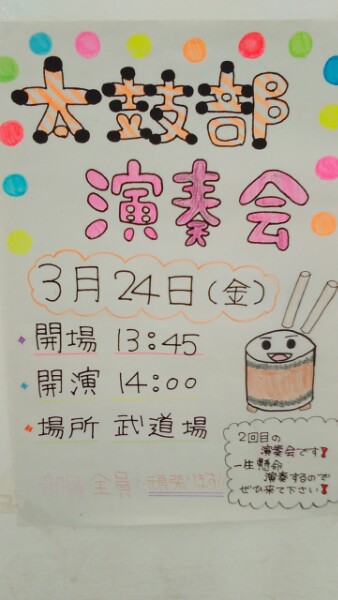 太鼓部
演奏会
3月24日(金)
開場 13:45
開演 14:00
場所 武道場
全員
2回目の
演奏会です!
一生懸命
演奏するので
ぜひ来て下さい!